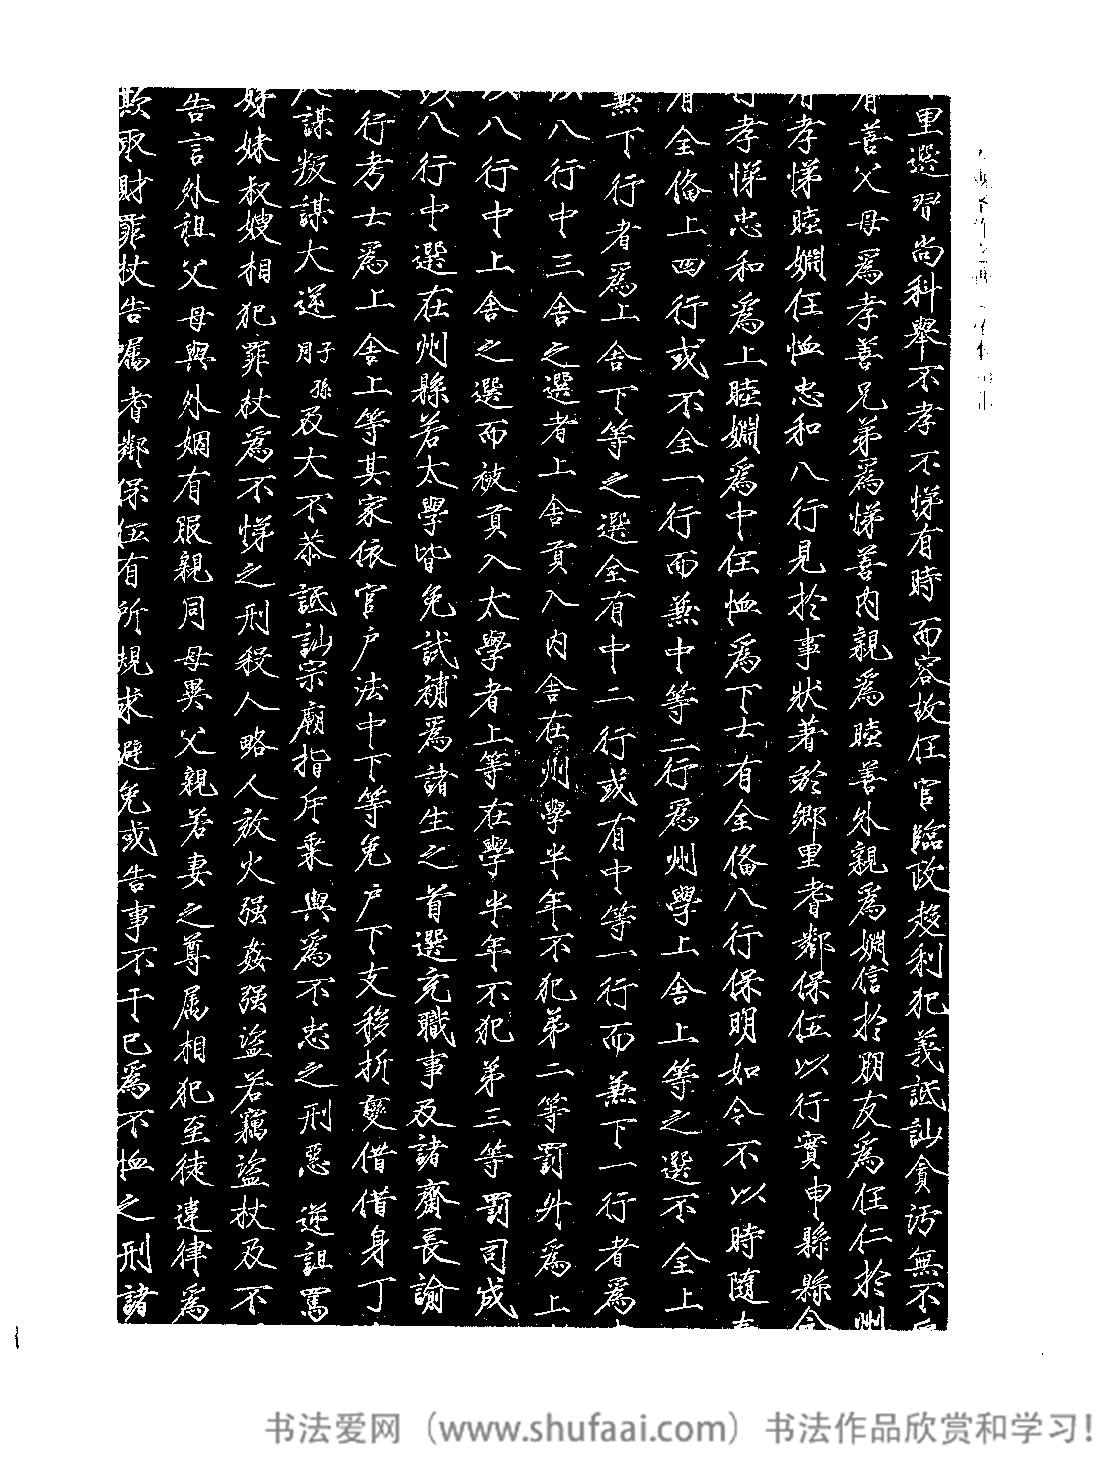 里選習尚科舉不孝不悌有時而容故任官臨政趍利犯義詆訕貪污無不
善父母爲孝善兄弟爲悌善内親爲睦善外親爲婣信扵朋友爲任仁扵州
孝悌睦婣任恤忠和八行見扵事狀著扵鄉里耆鄰保伍以行實申縣縣令
孝悌忠和爲上睦婣爲中任恤爲下士有全偹八行保明如令不以時隨
有全偹上四行或不全一行而兼中等二行爲州學上舍上等之選不全上
兼下行者爲上舍下等之選全有中二行或有中等一行而兼下一行者爲
以八行中三舍之選者上舍貢入内舍在州學半年不犯第二等罰升爲上
以八行中上舍之選而被貢入太學者上等在學半年不犯第三等罰司成
以八行中選在州縣若太學皆免試補爲諸生之首選充職事及諸齋長諭
行考士爲上舍上等其家依官户法中下等免户下支移折變借借身丁
謀叛謀大逆子孫同及大不恭詆訕宗廟指斥乗輿爲不忠之刑惡逆詛罵
姊妹叔嫂相犯罪杖爲不悌之刑殺人略人放火强姦强盗若竊盗杖及不
告言外祖父母與外姻有服親同母異父親若妻之尊属相犯至徒違律爲
欺取財罪杖告嘱耆鄰保伍有所規求避免或告事不干已爲不恤之刑諸
书法爱网（www.shufaai.com）书法作品欣赏和学习！